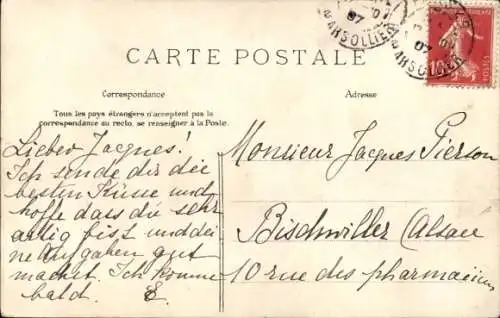 CARTE POSTALE
Correspondance
Adresse
Tous les pays étrangers n'acceptent pas la
correspondance au recto, se renseigner à la Poste.
Lieber Jacques!
Ich sende dir die
besten Küsse und
hoffe dass du sehr
artig bist und dei
ne Aufgaben gut
machst. Ich komme
bald. E
Monsieur Jacques Pierson
Bischwiller (Alsace
10 rue des pharmaciens
MARSOLLIER
07
MARSOLLIER
07
10